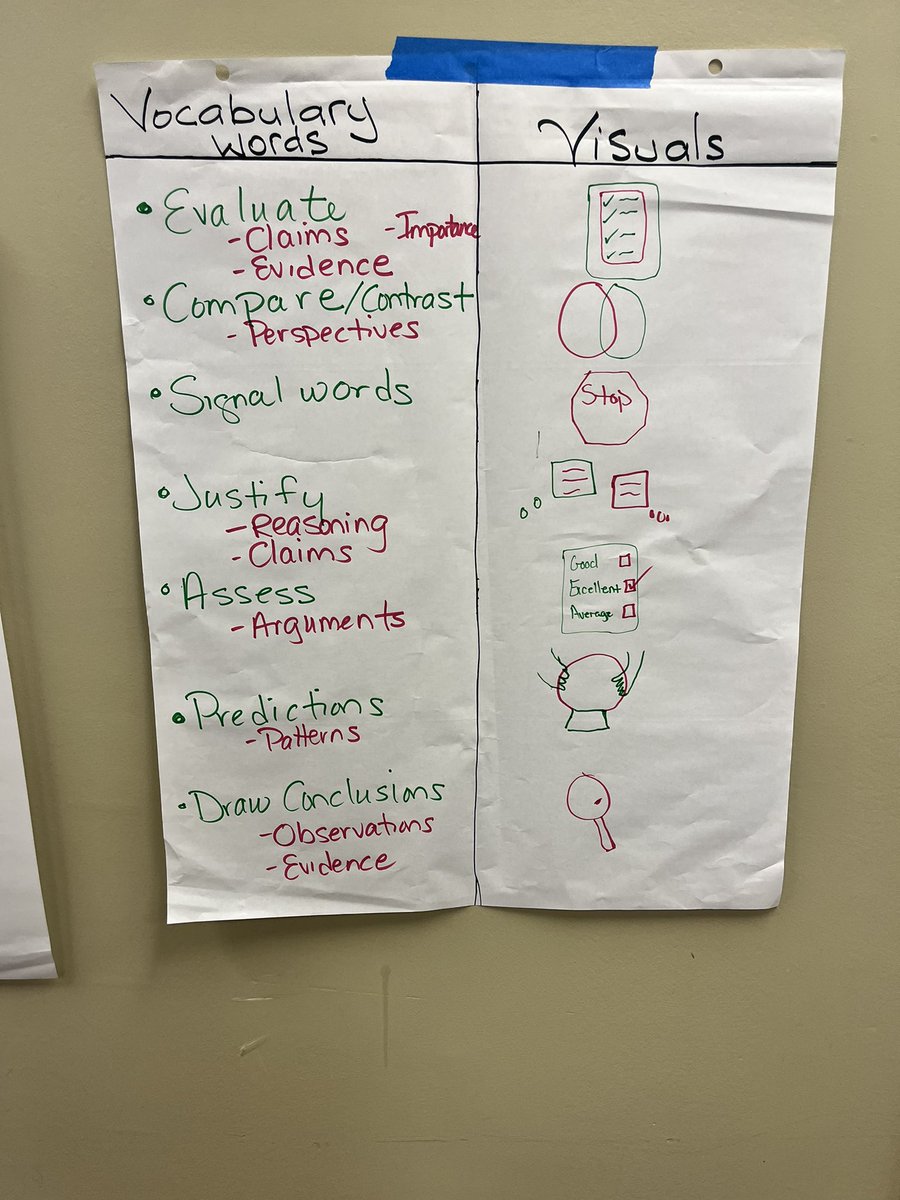 Vocabulary words
Visuals
• Evaluate
- Claims - Importance
- Evidence
• Compare/Contrast
- Perspectives
• Signal words
Stop
• Justify
- Reasoning
- Claims
Good
Excellent
Average
• Assess
- Arguments
• Predictions
- Patterns
• Draw Conclusions
- Observations
- Evidence